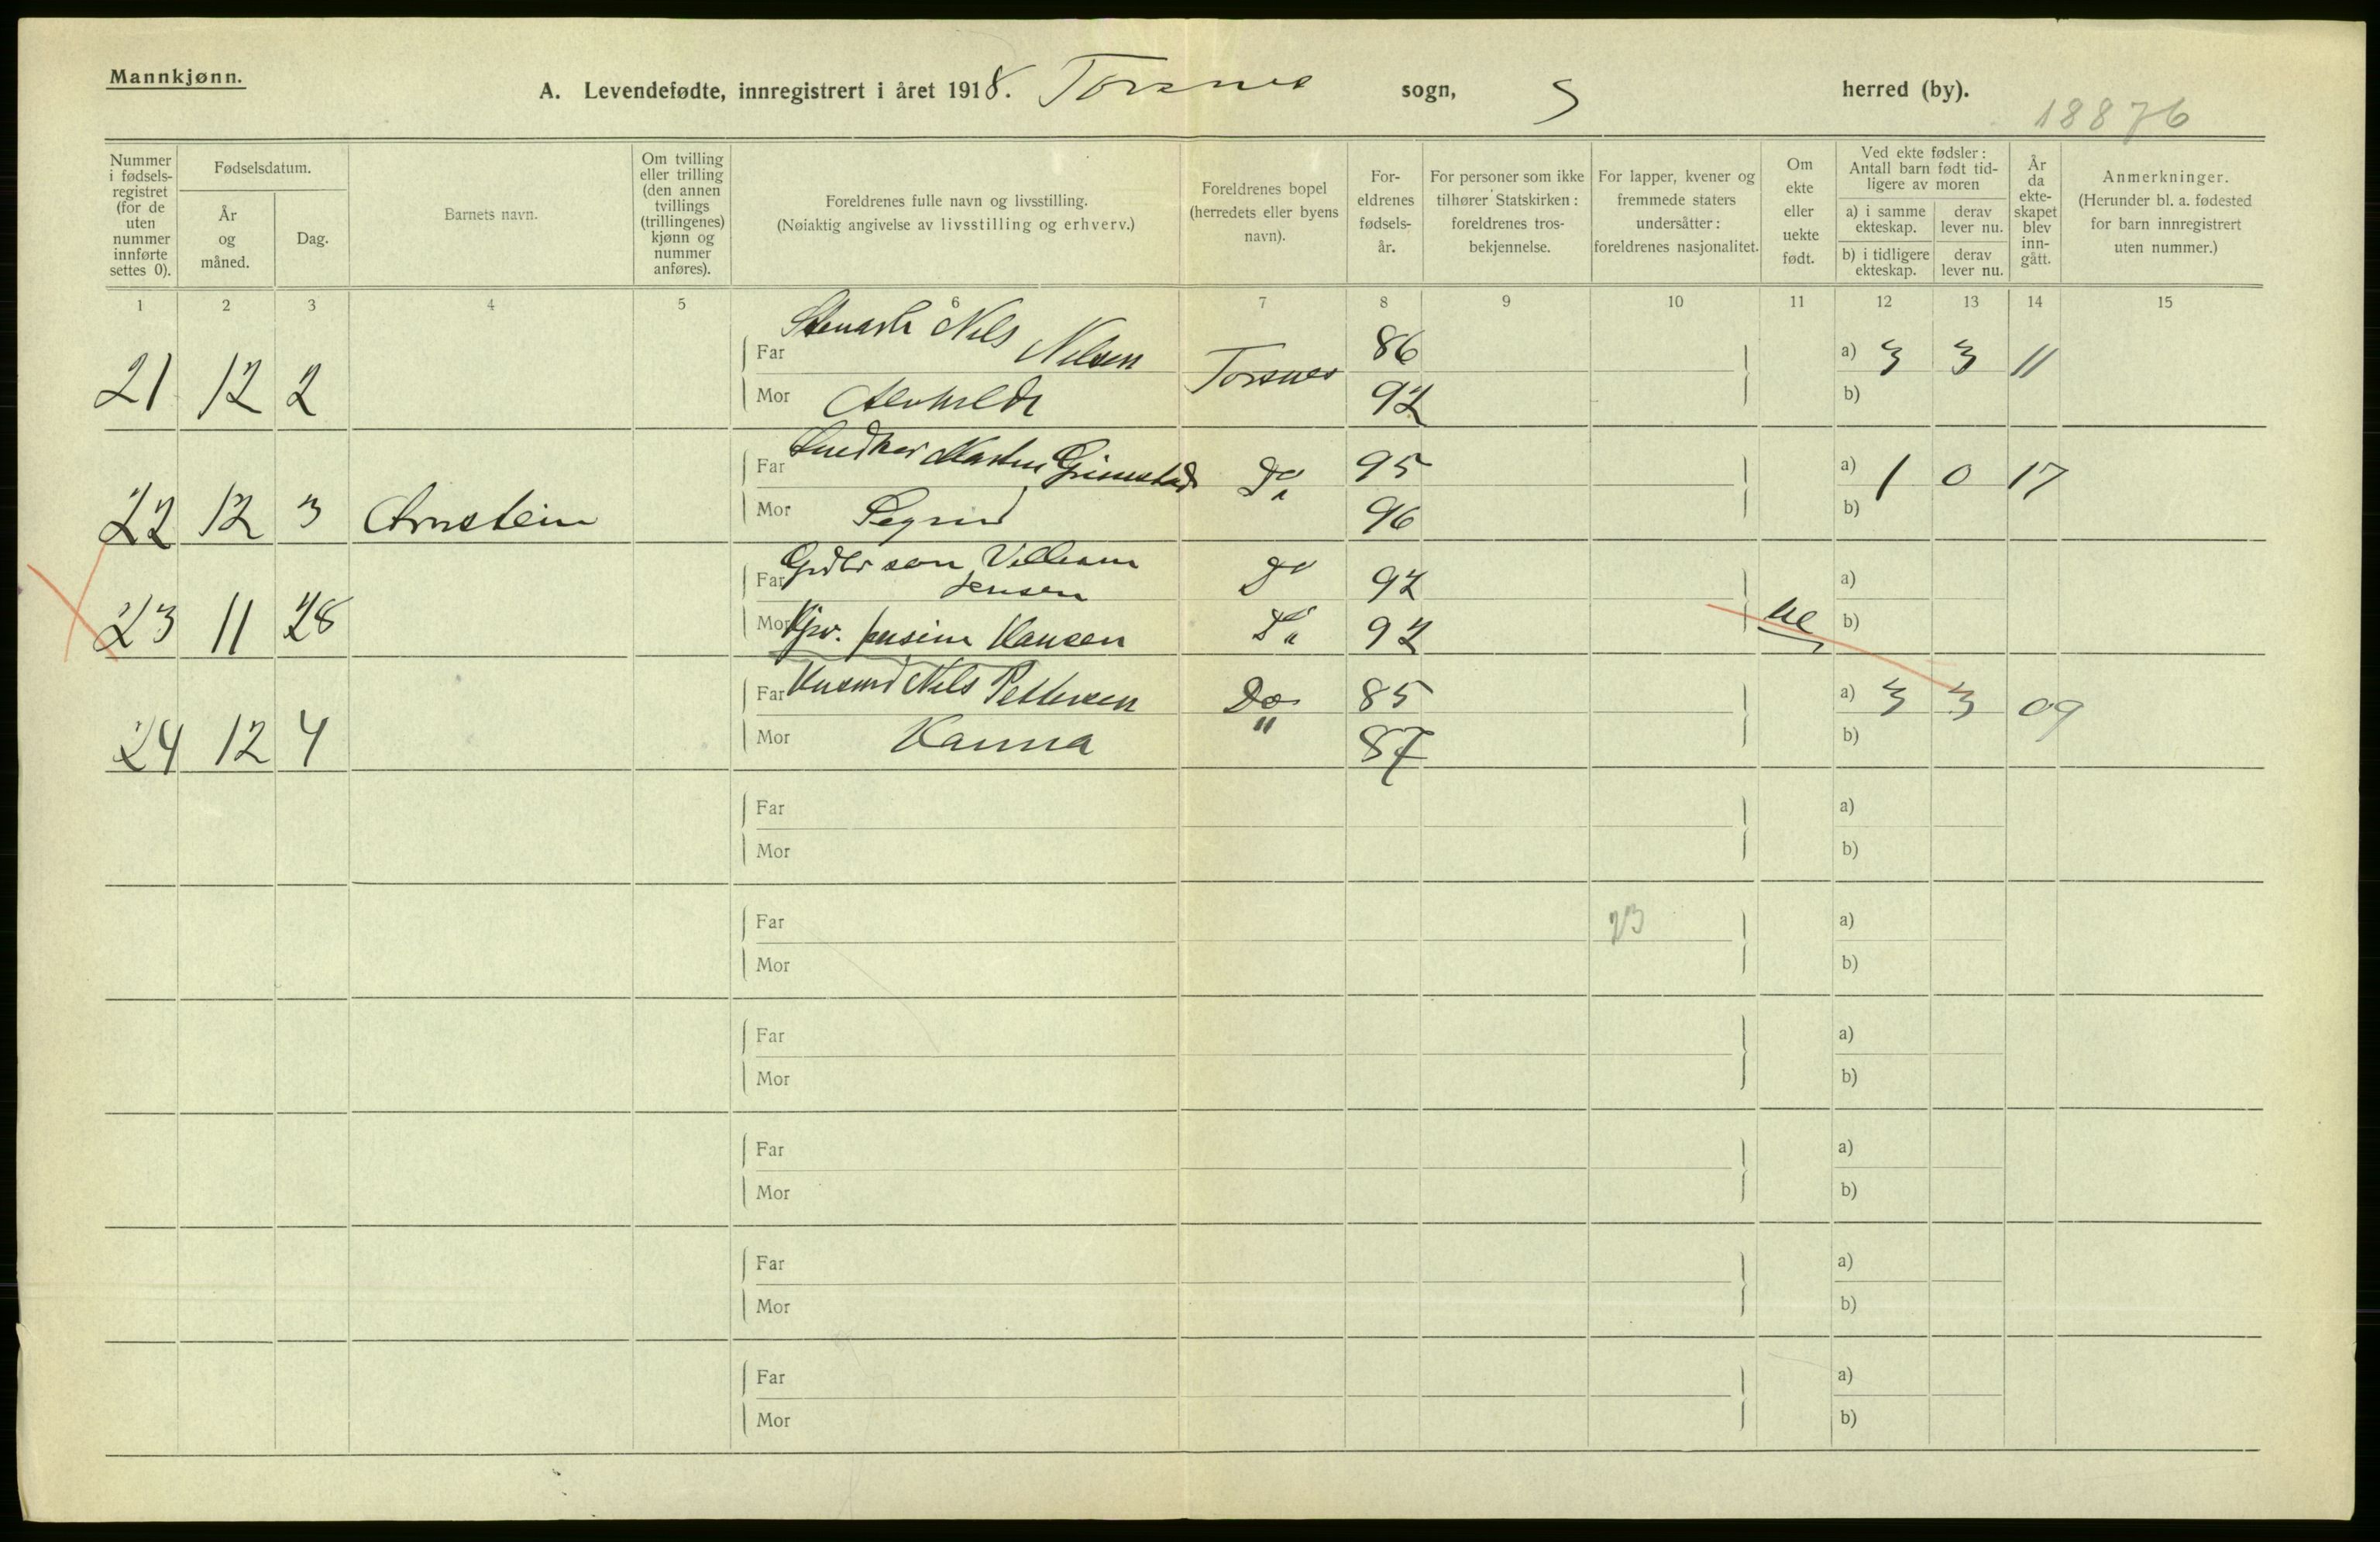 Mannkjønn.
A. Levendefødte, innregistrert i året 1918. Torsnes sogn, S herred (by).
18876
Nummer i fødsels-registret (for de uten nummer innførte settes 0).
Fødselsdatum.
År og måned.
Dag.
Barnets navn.
Om tvilling eller trilling (den annen tvillings (trillingenes) kjønn og nummer anføres).
Foreldrenes fulle navn og livsstilling.
(Nøiaktig angivelse av livsstilling og erhverv.)
Foreldrenes bopel (herredets eller byens navn).
For-eldrenes fødsels-år.
For personer som ikke tilhører Statskirken: foreldrenes tros-bekjennelse.
For lapper, kvener og fremmede staters undersåtter: foreldrenes nasjonalitet.
Om ekte eller uekte født.
Ved ekte fødsler: Antall barn født tid-ligere av moren
a) i samme ekteskap.
derav lever nu.
b) i tidligere ekteskap.
derav lever nu.
År da ekte-skapet blev inn-gått.
Anmerkninger.
(Herunder bl. a. fødested for barn innregistrert uten nummer.)
1 2 3 4 5 6 7 8 9 10 11 12 13 14 15
21 12 2 Far Nils Nilsen Torsnes 86 a) 3 3 11
Mor 92 b)
22 12 3 Arnstein Far Martin Grimstad Do 95 a) 1 0 17
Mor 96 b)
23 11 28 Far Villiam Jensen Do 92 a)
Mor Hansen Do 92 ue b)
24 12 4 Far Nils Pettersen Do 85 a) 3 3 09
Mor Hanna " 87 b)
Far a)
Mor b)
Far 23 a)
Mor b)
Far a)
Mor b)
Far a)
Mor b)
Far a)
Mor b)
Far a)
Mor b)